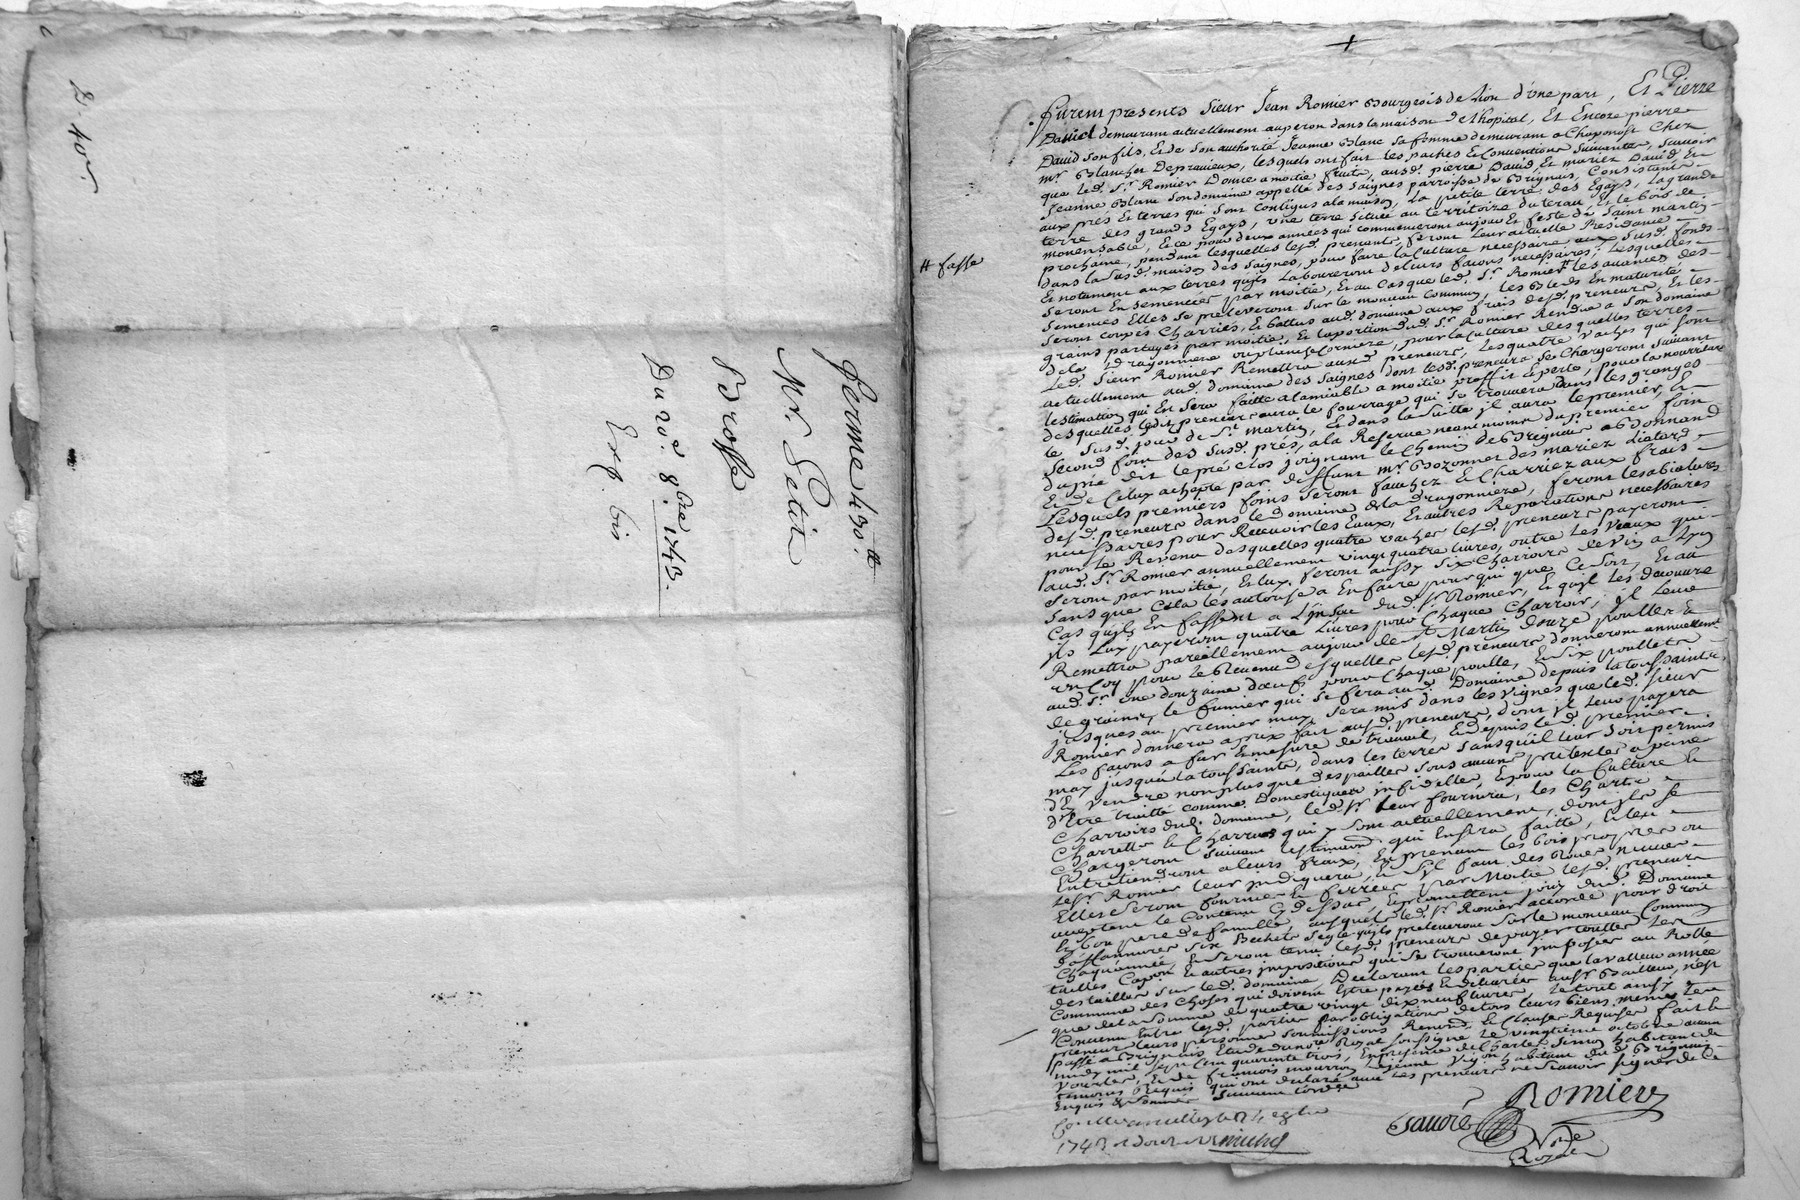 ferme 430.tt
Mr. Petit
Brosse
Du 20e. 8bre 1743.
Exp. bis
Furent presents Sieur Jean Romier Bourgeois de Lion d'une part, Et Pierre
David demeurant actuellement au peron dans la maison de l'hopital, Et Encore pierre
David son fils, Et de son authorité Jeanne Blanc sa femme demeurant a Chaponost Chez
mr Blanchet Depravieux, lesquels ont fait les paches Et Conventions Suivantes, Scavoir
que led. Sr. Romier Donne a moitié fruits, ausd. pierre David, Et mariez David, Et
Jeanne Blanc son domaine appellé des Saignes parroisse de Brignais, Consistant
aux prés Et terres qui sont contigus a la maison, La petite terre des Egays, La grande
terre des grands Egays, une terre scituée au territoire du terau Et le bois de
monensable, Et ce pour deux années qui commenceront au jour Et feste de Saint martin
prochaine, pendant lesquelles lesd. prenants feront leur actuelle Residance
# fasse
dans la susd. maison des Saignes, pour faire la Culture necessaire aux susd. fonds
Et notament aux terres qu'ils Laboureront de leurs facons necessaires, Lesquelles
seront Ensemencées par moitié, Et au Cas que led. Sr. Romier # les avances des
semences Elles se preleveront sur le monceau Commun, les Bleds En maturité
seront coupés Charriés, Et battus aud. domaine aux frais desd. preneurs, Et les
grains partagés par moitié, Et la portion dud. Sr. Romier Rendue a son domaine
de la Dragonniere ou planche Corniere, pour la Culture desquelles terres
Led. Sieur Romier Remettra ausd. preneurs, Les quatre vaches qui sont
actuellement aud. domaine des Saignes dont lesd. preneurs se Chargeront suivant
lestimation qui En sera faitte a lamiable a moitié proffit Et perte, pour la nourriture
desquelles lesdits preneurs aura le fourrage qui se trouvera dans les granges
le susd. jour de St. Martin, Et dans la suitte jl aura le premier, Et
second foin des susd. prés, a la Reserve neantmoins du premier foin
du pré dit le pré clos joignant le Chemin de Brignais a Bonnand
Et de Celux achepté par deffunt mr Bozonnet des mariez Liatard
Lesquels premiers foins seront fauchez Et Charriez aux frais
desd. preneurs dans le Domaine de la Dragonniere, feront les bialures
necessaires pour Recevoir les Eaux, Et autres Reparations necessaires
pour le Revenu desquelles quatre vaches lesd. preneurs payeront
aud. Sr. Romier annuellement vingt quatre livres, outre les veaux qui
seront par moitié, Et luy feront aussy six Charroirs de vin a Lyon
sans que cela les autorise a En faire pour qui que ce soit, Et au
Cas qu'ils En fassent a L'insçu dud. Sr. Romier, Et qu'il les decouvre
jls Luy payeront quatre Livres pour Chaque Charroir, jl Leur
Remettra pareillement au jour de St Martin douze poulles &
un Coq pour le Revenu desquelles lesd. preneurs donneront annuellemt
aud. Sr. une douzaine dœufs pour Chaque poulle, Et six poullets
de grains, le fumier qui se fera aud. Domaine depuis la toussaints
jusques au premier may, sera mis dans les vignes que led. sieur
Romier donnera a prix fait ausd. preneurs, dont jl leur payera
Les façons a fur Et mesure de travail, Et depuis led. premier
may jusqu'a la toussaints, dans les terres sans qu'il leur soit permis
d'En vendre non plus que des pailles sous aucuns pretextes a peine
d'Etre traitté comme Domestiques infidelles, Et pour la Culture &
Charroirs dud. domaine, led. Sr. leur fournira, les Chars
Charrette & Charrues qui y sont actuellement, dont jls se
Chargeront suivant lestimation qui En sera faitte, Et les
Entretiendront a leurs fraix, En prenant les bois propres ou
led Sr. Romier leur jndiquera, & s'jl faut des Roues neuves
Elles seront fournies & ferrées par Moitié lesd. preneurs
acceptent le Contenu Cy dessus, Et promettent jouir dud. Domaine
En bon pere de famille, ausquels led. Sr. Romier accorde pour droit
d'affannures six Bechets seigle qu'ils preleveront sur le monceau Commun
Chaque année, Et seront tenus lesd. preneurs de payer touttes les
tailles Capon Et autres jmpositions qui se trouveront jmposées au Rolle
des tailles sur led. domaine, Declarant les parties que la valleur année
Commune des Choses qui doivent Estre payées Et delivrées aud. Sr. Bailleur, n'est
que de la somme de quatre vingt dix neuf livres, le tout ainsy
Convenu Entre lesd. parties par obligations de tous leurs biens, memes les
preneurs leurs personnes soumissions Renonc. & Clauses Requises fait &
passé a Brignais Etude du notre Royal soussigné le vingtieme octobre avant
midy mil sept cent quarente trois, En presence de Charles Simon habitant de
Vourles, Et de françois mourron Lejeune vigon habitant dud. Brignais
temoins Requis qui ont declaré avec les preneurs ne scavoir signer de ce
Enquis & sommés suivant lordce
Romier
Sauvré
Nore
Royal